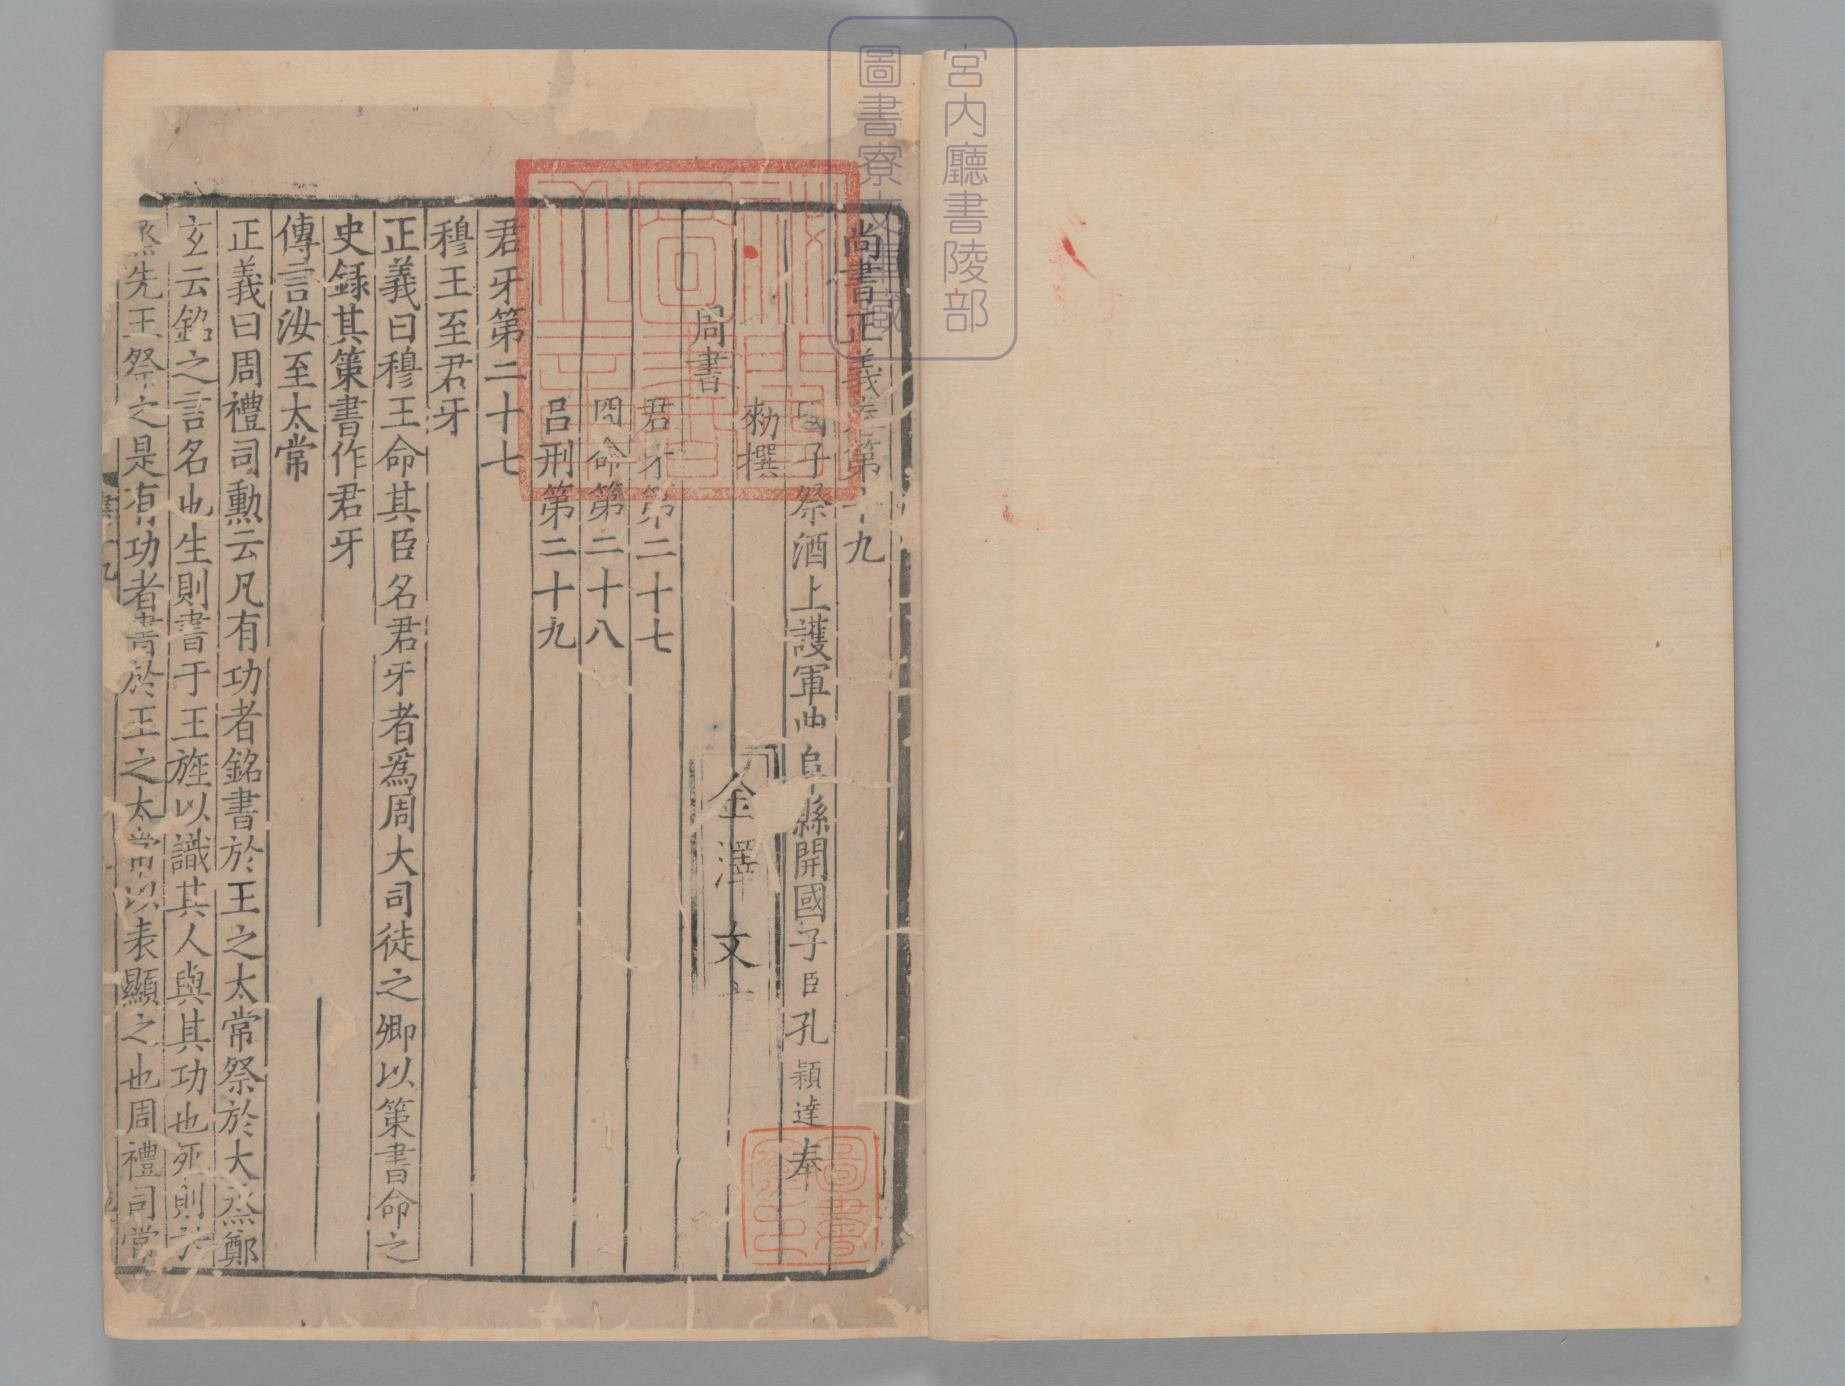 宮内廳書陵部
圖書寮文庫藏
尚書正義卷第十九
國子祭酒上護軍曲阜縣開國子臣孔穎達奉
勑撰
周書
君牙第二十七
冏命第二十八
呂刑第二十九
君牙第二十七
穆王至君牙
正義曰穆王命其臣名君牙者爲周大司徒之卿以策書命之
史録其策書作君牙
傳言汝至太常
正義曰周禮司勳云凡有功者銘書於王之太常祭於大烝鄭
玄云銘之言名也生則書于王旌以識其人與其功也死則於
烝先王祭之是有功者書於王之太常以表顯之也周禮司常
金澤文
圖書寮印